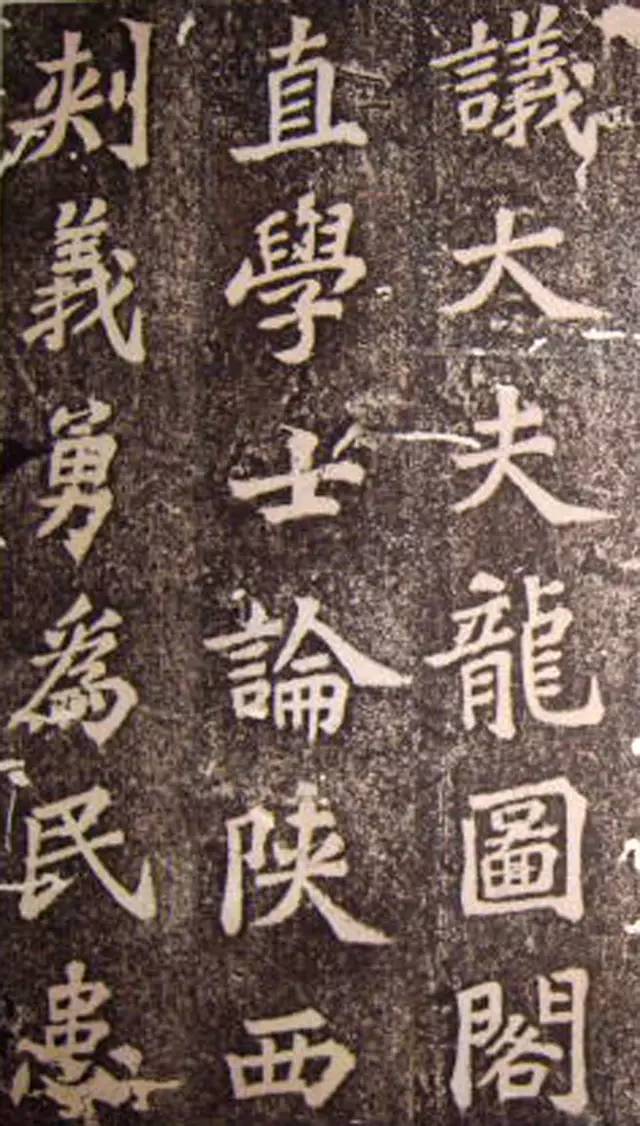 議大夫龍圖閣
直學士論陝西
刺義勇為民患